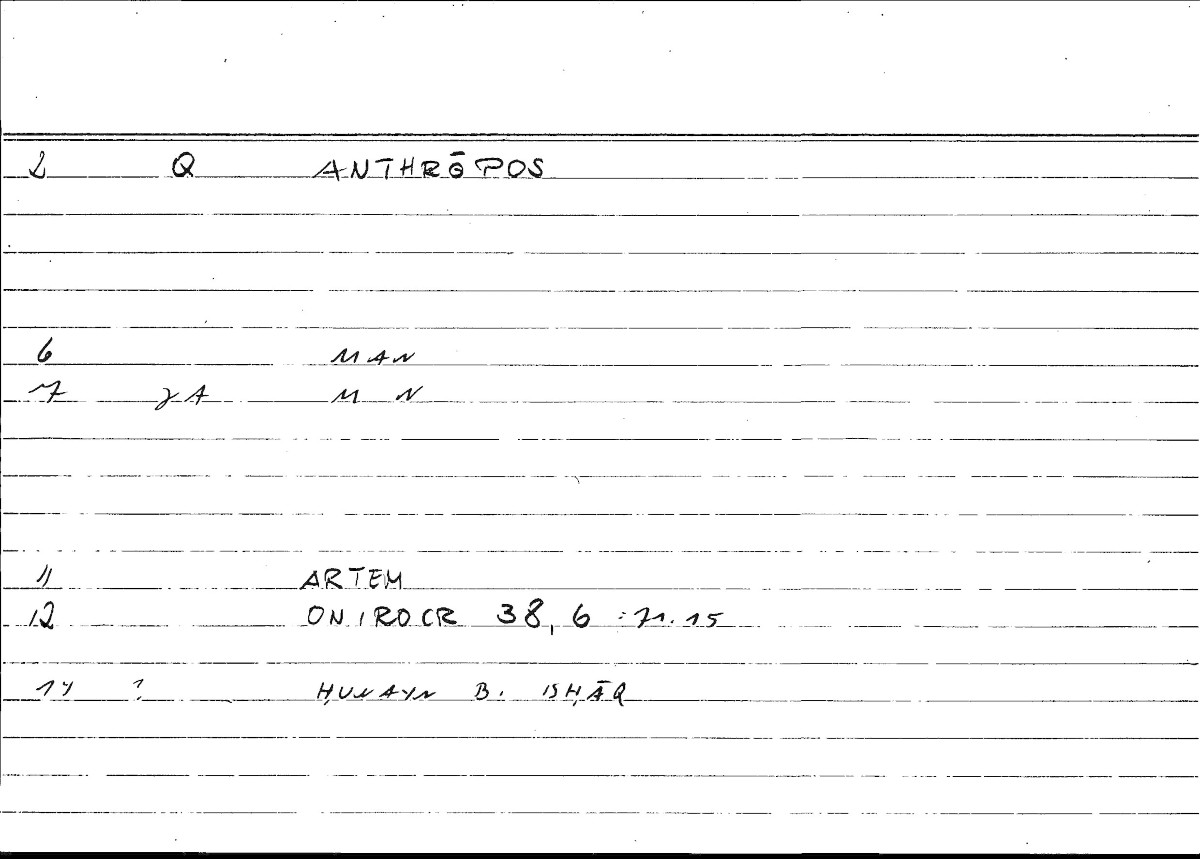 2 Q ANTHRŌPOS
6 MAN
7 γA M N
11 ARTEM
12 ONIROCR 38, 6 : 71.15
14 ? ḤUNAYN B. ISḤĀQ